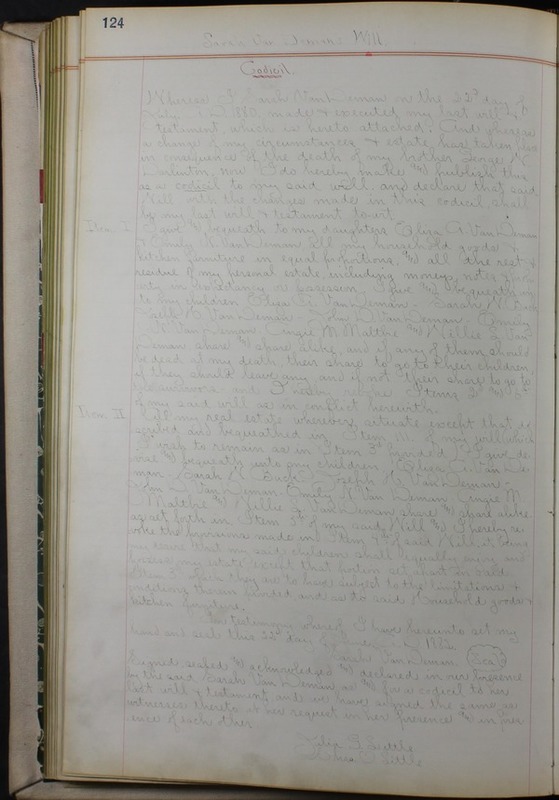 124
Sarah Van Deman's Will
Codicil.
Whereas I Sarah VanDeman on the 22d day of
A.D. 1880, made & executed my last will &
testament, which is hereto attached; And whereas
a change of my circumstances & estate, has taken place
in consequence of the death of my brother George W.
now I do hereby make and publish this
as a codicil to my said will, and declare that said
Will with the changes made in this codicil shall
be my last will & testament
Item I I give & bequeath to my daughters Eliza A. Van Deman
& Emily N. VanDeman all my household goods &
kitchen furniture in equal proportions, and all the rest &
residue of my personal estate, including moneys, notes &
in expectancy or possession, I give and bequeath
to my children Eliza A. Van Deman - Sarah N.
Joseph H. Van Deman - John D. Van Deman - Emily
N. Van Deman - Angie M. and Nellie Z. Van
Deman share and share alike, and if any of them should
be dead at my death, their share to go to their children,
if they should leave any and if not their share to go to
survivors. and I hereby revoke Items
of my said will as in conflict herewith.
Item II All my real estate wherever situate except that de-
scribed and bequeathed in Item III of my will which
I wish to remain as in Item 3d provided I give de-
vise and bequeath unto my children Eliza A. Van De-
man - Sarah N. Joseph H. Van Deman -
John D. Van Deman - Emily N. Van Deman - Angie M.
and Nellie Z. Van Deman share and share alike
as set forth in Item 5th of my said Will and I hereby re-
voke the provisions made in Item 4th of said Will, it being
my desire that my said children shall equally
my estate except that portion set apart in said
Item 3 which they are to have subject to the limitations &
therein provided, and as to said Household goods &
kitchen furniture.
In testimony whereof I have hereunto set my
hand and seal this 22d day of 1882.
Sarah Van Deman (Seal)
Signed sealed and acknowledged and declared in our presence
by the said Sarah Van Deman as and for a codicil to her
last will & testament, and we have signed the same as
witnesses thereto at her request in her presence and in pres-
ence of each other.
Julia G. Little
Little